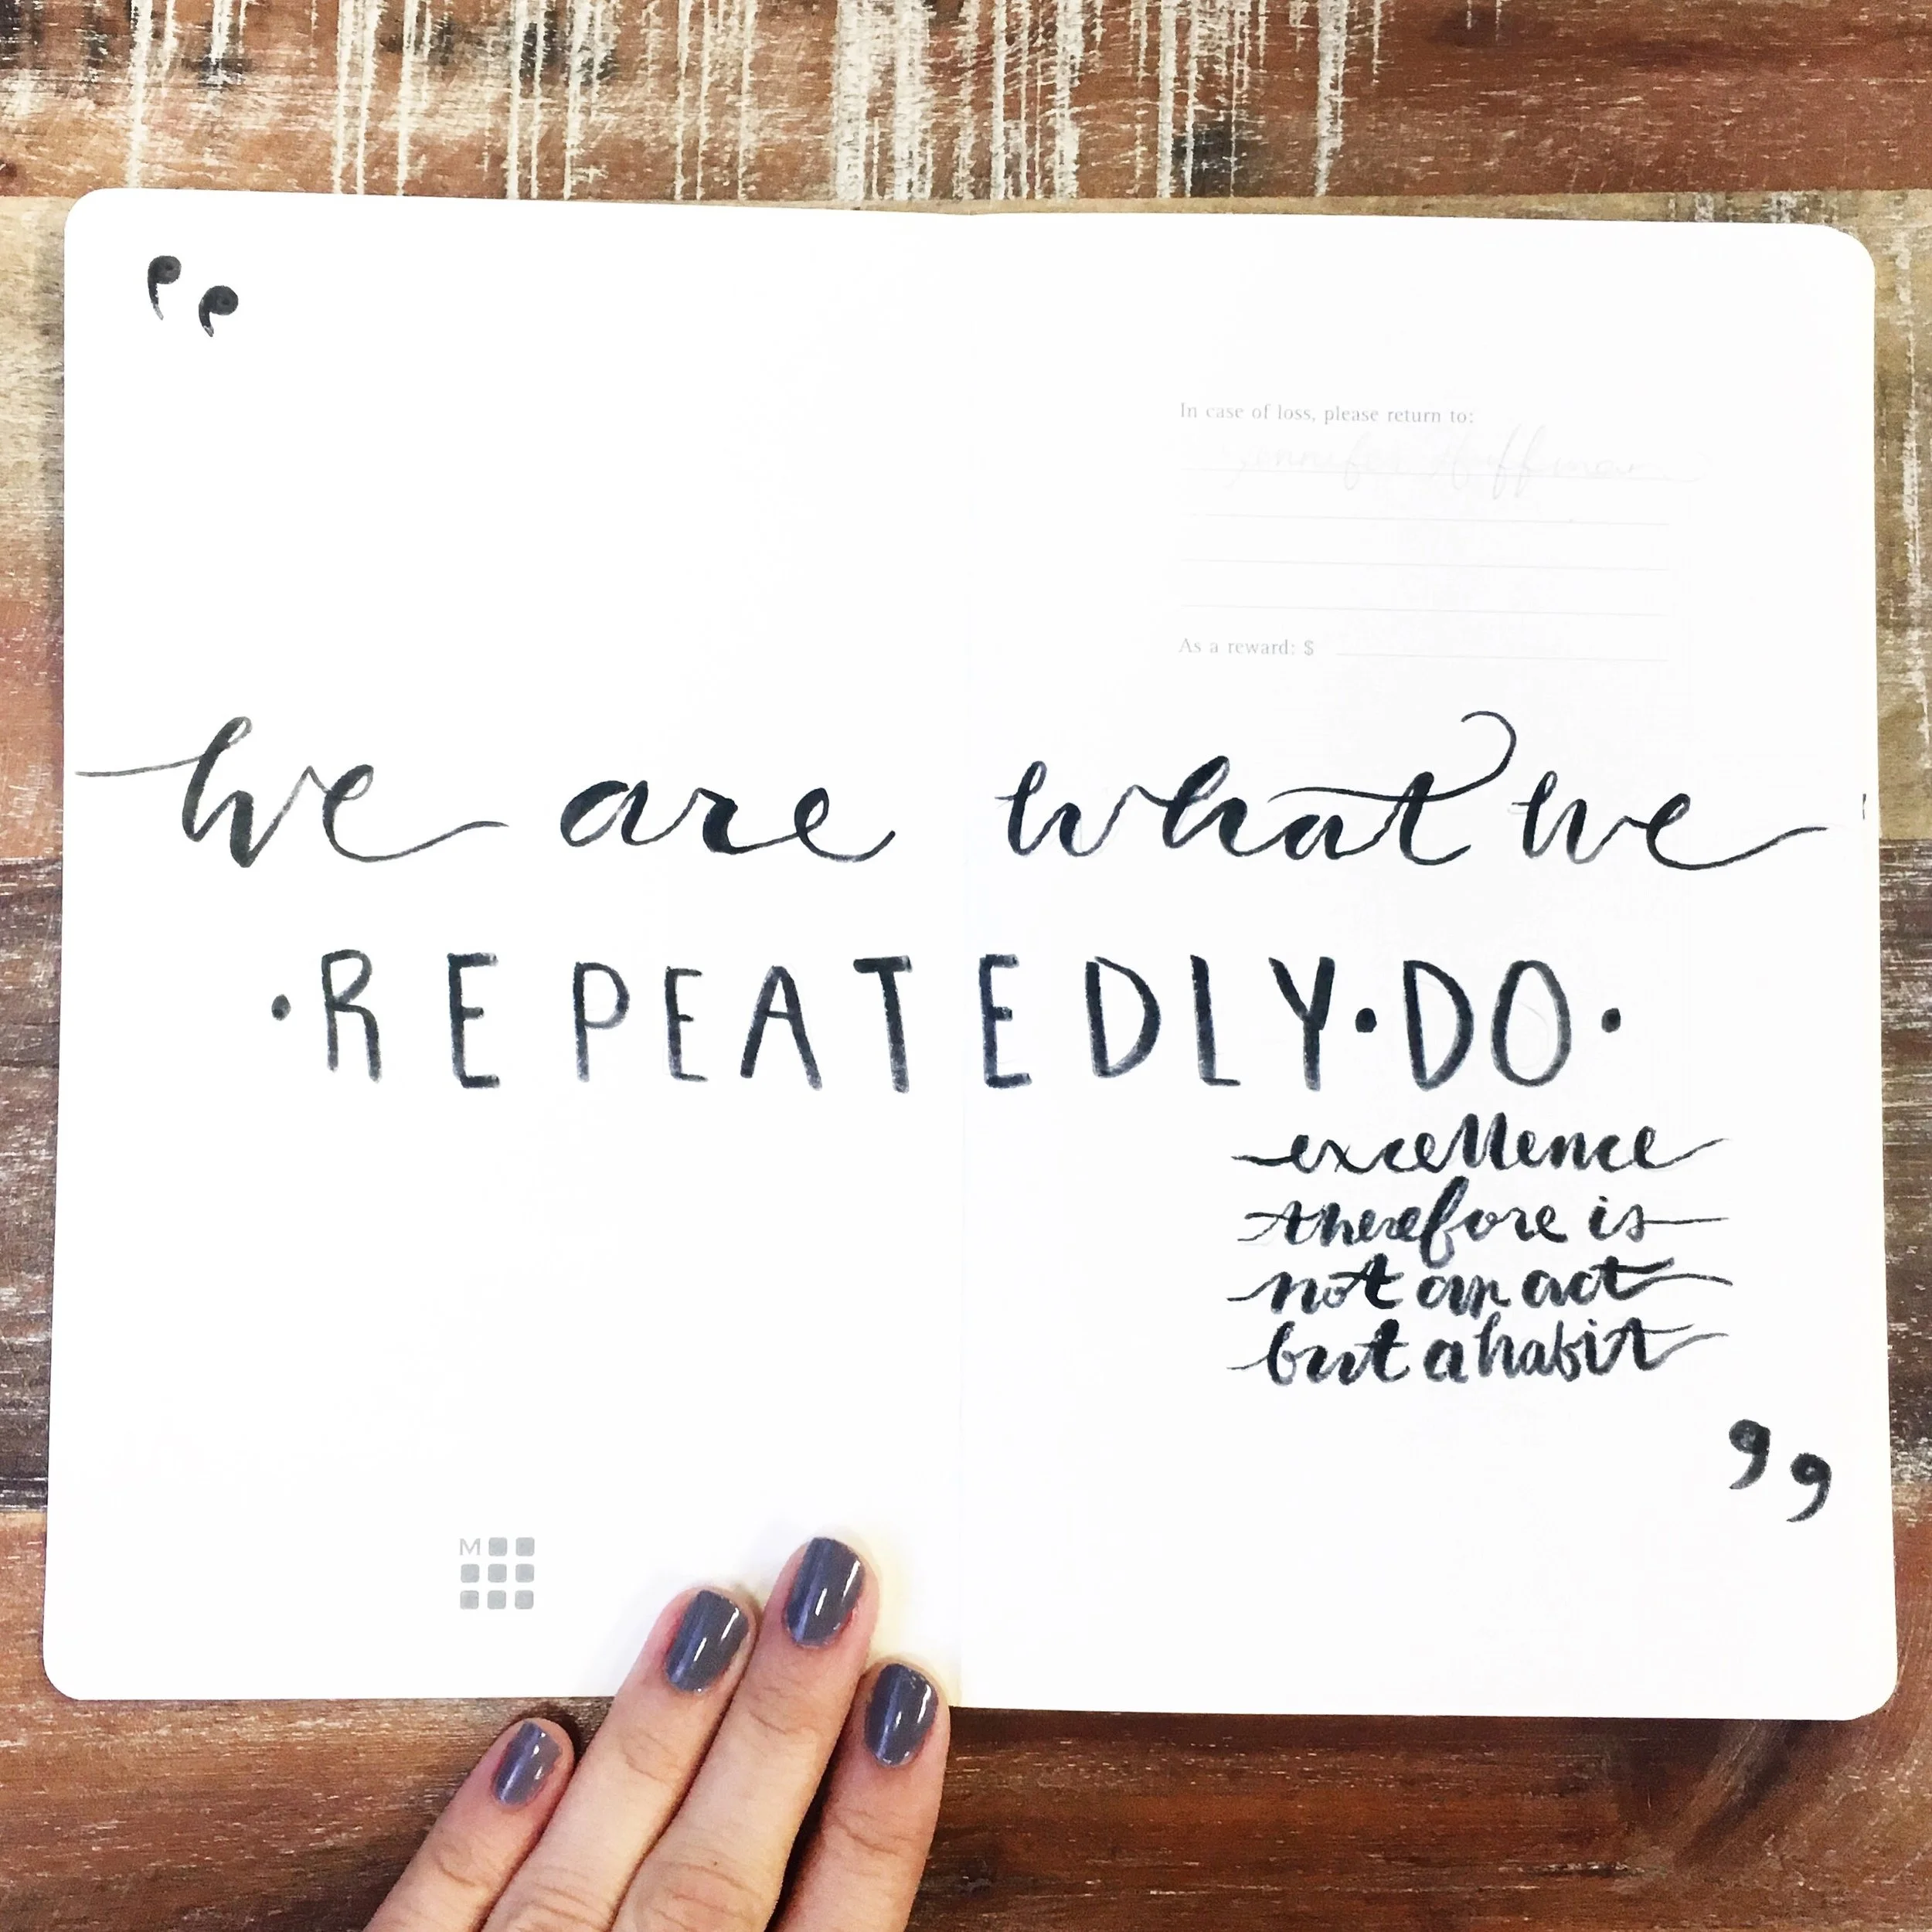 In case of loss, please return to:
As a reward: $
we are what we
·REPEATEDLY·DO·
excellence
therefore is
not an act
but a habit
”
M